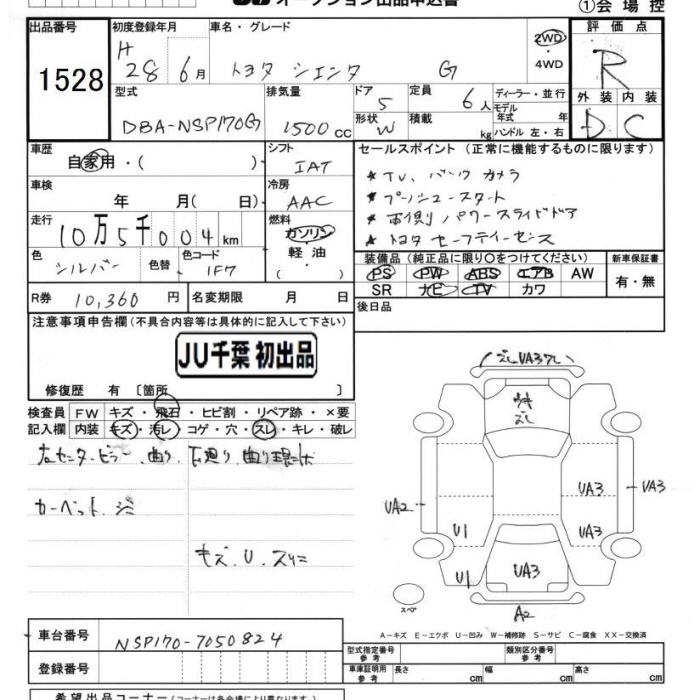 オークション出品申込書
①会場控
出品番号 初度登録年月 車名・グレード 評価点
1528
H 28 6月 トヨタ シエンタ G 2WD・4WD R
型式 排気量 ドア 定員 ディーラー・並行 外装 内装
DBA-NSP170G 1500cc 5 6人 モデル年式 年 D C
形状 W 積載 kg ハンドル 左・右
車歴 シフト セールスポイント (正常に機能するものに限ります)
自家用・( ) IAT
★ TV、バック カメラ
車検 冷房
年 月(日) AAC
★ プッシュースタート
走行 燃料
10万5千004km ガソリン・軽油・( )
★ 両側 パワースライドドア
★ トヨタ セーフティーセンス
色 色替 色コード
シルバー 1F7
装備品 (純正品に限り○をつけてください) 新車保証書
PS PW ABS エアB AW 有・無
SR ナビ TV カワ
R券 10,360円 名変期限 月 日
後日品
注意事項申告欄(不具合内容等は具体的に記入して下さい)
JU千葉 初出品
修復歴 有 〔箇所 〕
検査員 FW キズ・飛石・ヒビ割・リペア跡・×要
記入欄 内装 キズ・汚レ・コゲ・穴・スレ・キレ・破レ
右センターピラー 曲り
カーペット シミ
キズ、U、スリ
ズレUA3ワレ
ズレ
UA3
UA3
UA2
UA3
U1
U1
UA3
A2
スペア
A-キズ E-エクボ U-凹み W-補修跡 S-サビ C-腐食 XX-交換済
車台番号 NSP170-7050824
登録番号
型式指定番号 参考 類別区分番号 参考
車庫証明用 参考 長さ cm 幅 cm 高さ cm
希望出品コーナー (コーナーは各会場により異なります)